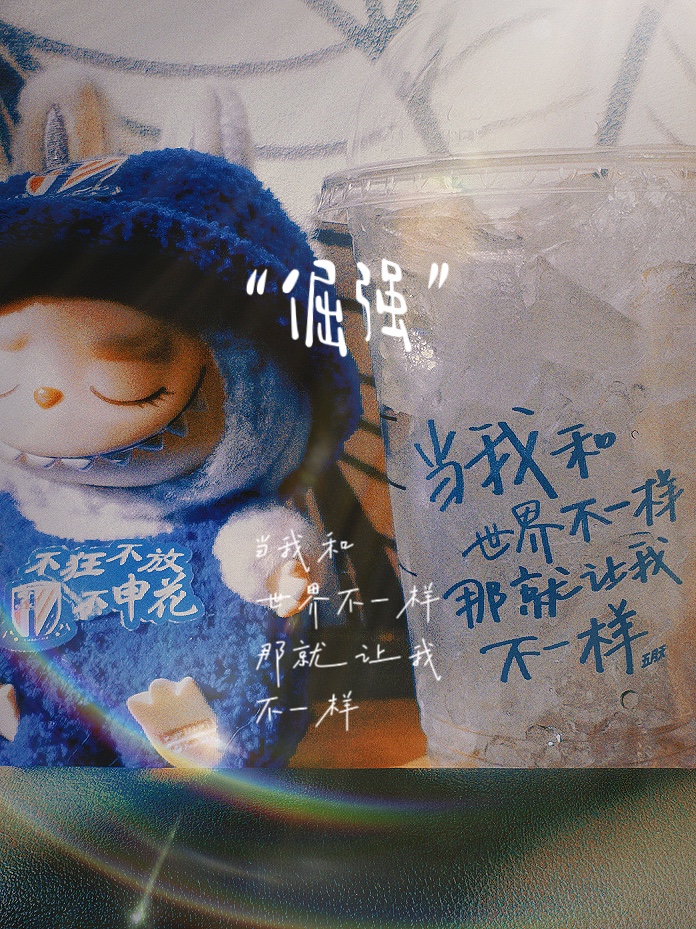 “倔强”
当我和
世界不一样
那就让我
不一样
五月天
不狂不放
不申花
当我和
世界不一样
那就让我
不一样